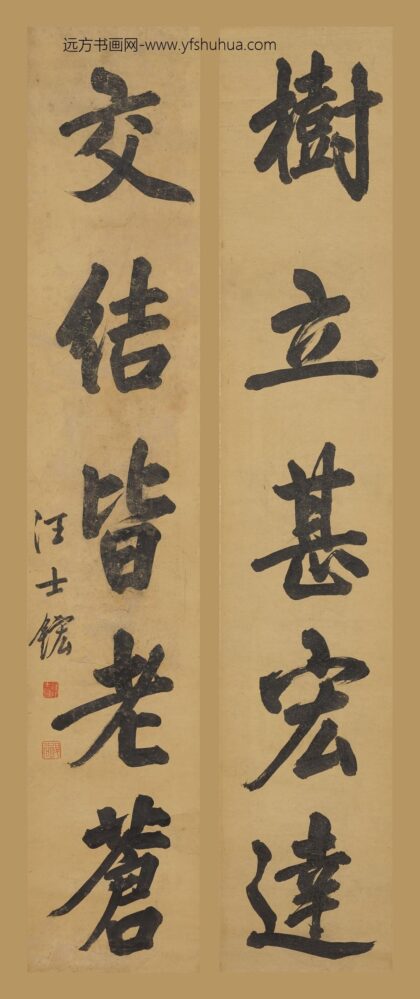 远方书画网-www.yfshuhua.com
樹立甚宏達
交结皆老蒼
汪士鋐